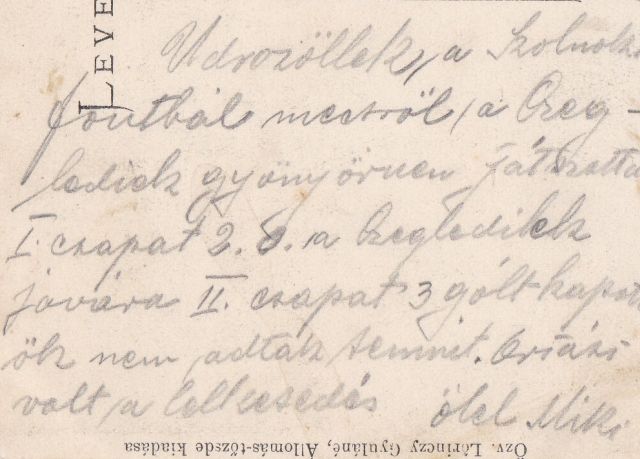 LEVE
Üdvözöllek, a Szolnoki
foutbál mecsről, a Czeg-
lediek gyönyörüen játszotta
I. csapat 2.0. a Czegledikek
javára II. csapat 3 gólt kapot
ők nem adtak semmit. Oriási
volt a lelkesedés ölel Miki
Özv. Lőrinczy Gyuláné, Állomás-tőzsde kiadása